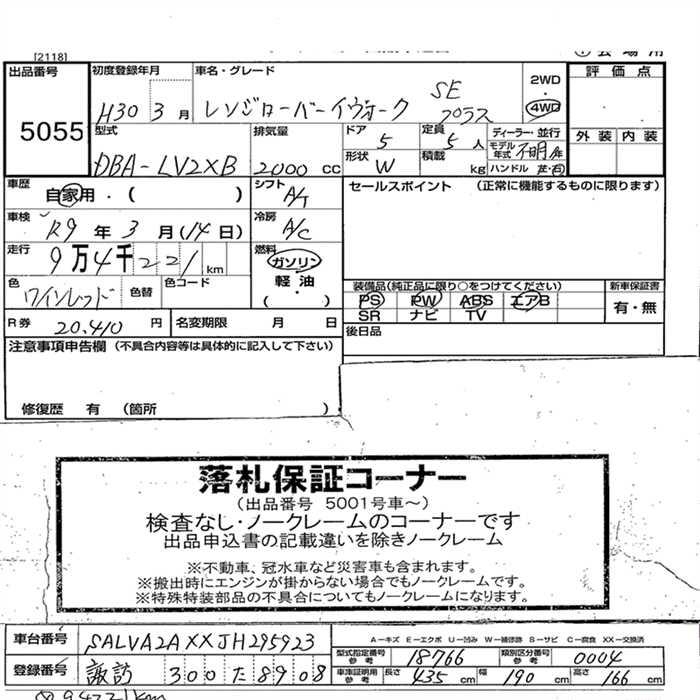 [2118]
出品番号 5055
初度登録年月 H30 3月
車名・グレード レンジローバーイヴォーク SE プラス
2WD ・ 4WD
評価点
外装 内装
型式 DBA-LV2XB
排気量 2000 cc
ドア 5
定員 5人
形状 W
積載 kg
ディーラー・並行
モデル年式 不明 年
ハンドル 左・右
車歴 自家用・( )
シフト A/T
車検 R9年 3月(14日)
冷房 A/C
走行 9万4千221km
燃料 ガソリン 軽油・( )
色 ワインレッド 色替 色コード
R券 20,410 円 名変期限 月 日
セールスポイント (正常に機能するものに限ります)
装備品(純正品に限り○をつけてください)
PS PW ABS エアB
SR ナビ TV
新車保証書
有・無
後日品
注意事項申告欄 (不具合内容等は具体的に記入して下さい)
修復歴 有 (箇所 )
落札保証コーナー
(出品番号 5001号車~)
検査なし・ノークレームのコーナーです
出品申込書の記載違いを除きノークレーム
※不動車、冠水車など災害車も含まれます。
※搬出時にエンジンが掛からない場合でもノークレームです。
※特殊特装部品の不具合についてもノークレームになります。
車台番号 SALVA2AXXJH295923
A-キズ E-エクボ U-凹み W-補修跡 S-サビ C-腐食 XX-交換済
型式指定番号参考 18766 類別区分番号参考 0004
登録番号 諏訪 300 た 8908
車庫証明用参考 長さ 435 cm 幅 190 cm 高さ 166 cm